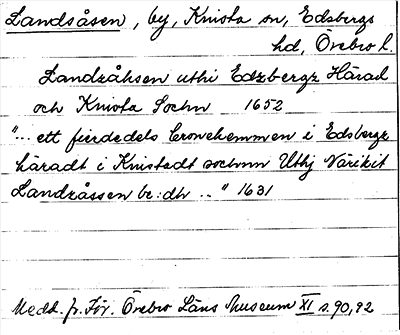 Landsåsen, by, Knista sn, Edsbergs
hd, Örebro l.
Landzåhsen uthi Edzbergz Härad
och Knista Sochn 1652
"... ett fierdedels Cronehemmen i Edsbergz
häradt i Knistadt sochnn Uthj Närikit
Landzåssen be:dtt ..." 1631
Medd. fr. För. Örebro Läns Museum XI s. 90, 92